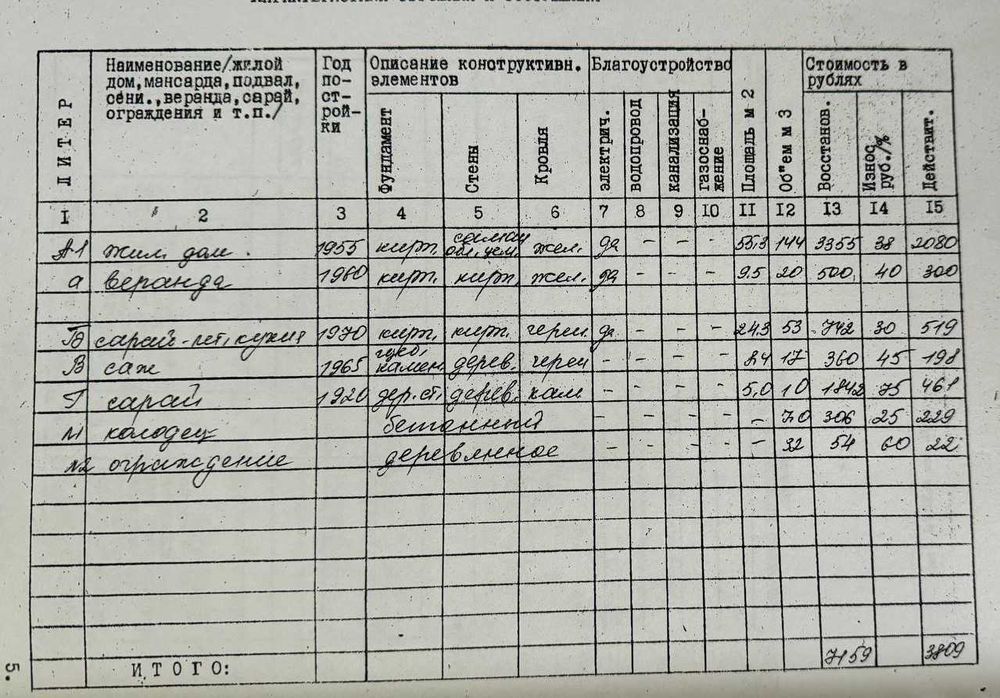 Наименование/жилой дом, мансарда, подвал, сени., веранда, сарай, ограждения и т.п./
ЛИТЕР
Год по-ст-рой-ки
Описание конструктивн. элементов
Благоустройство
Площадь м 2
Об"ем м 3
Стоимость в рублях
Фундамент
Стены
Кровля
электрич.
водопровод
канализация
газоснаб-жение
Восстанов.
Износ руб./%
Действит.
I 2 3 4 5 6 7 8 9 I0 II I2 I3 I4 I5
А1 жил. дом. 1955 кирп. жел. да - - - 55,3 144 3355 38 2080
а веранда 1960 кирп. кирп. жел. да - - - 9.5 20 500 40 300
Б сарай-лет. кухня 1970 кирп. кирп. череп. да - - - 24.3 53 742 30 519
В саж 1965 камен. дерев. череп - - - - 8.4 17 360 45 198
Г сарай 1920 дер.ст. дерев. кам - - - - 5,0 10 1842 75 461
N1 колодец бетонный - - - - - 7.0 306 25 229
N2 ограждение деревянное - - - - - 32 54 60 22
ИТОГО: 7159 3809
5.